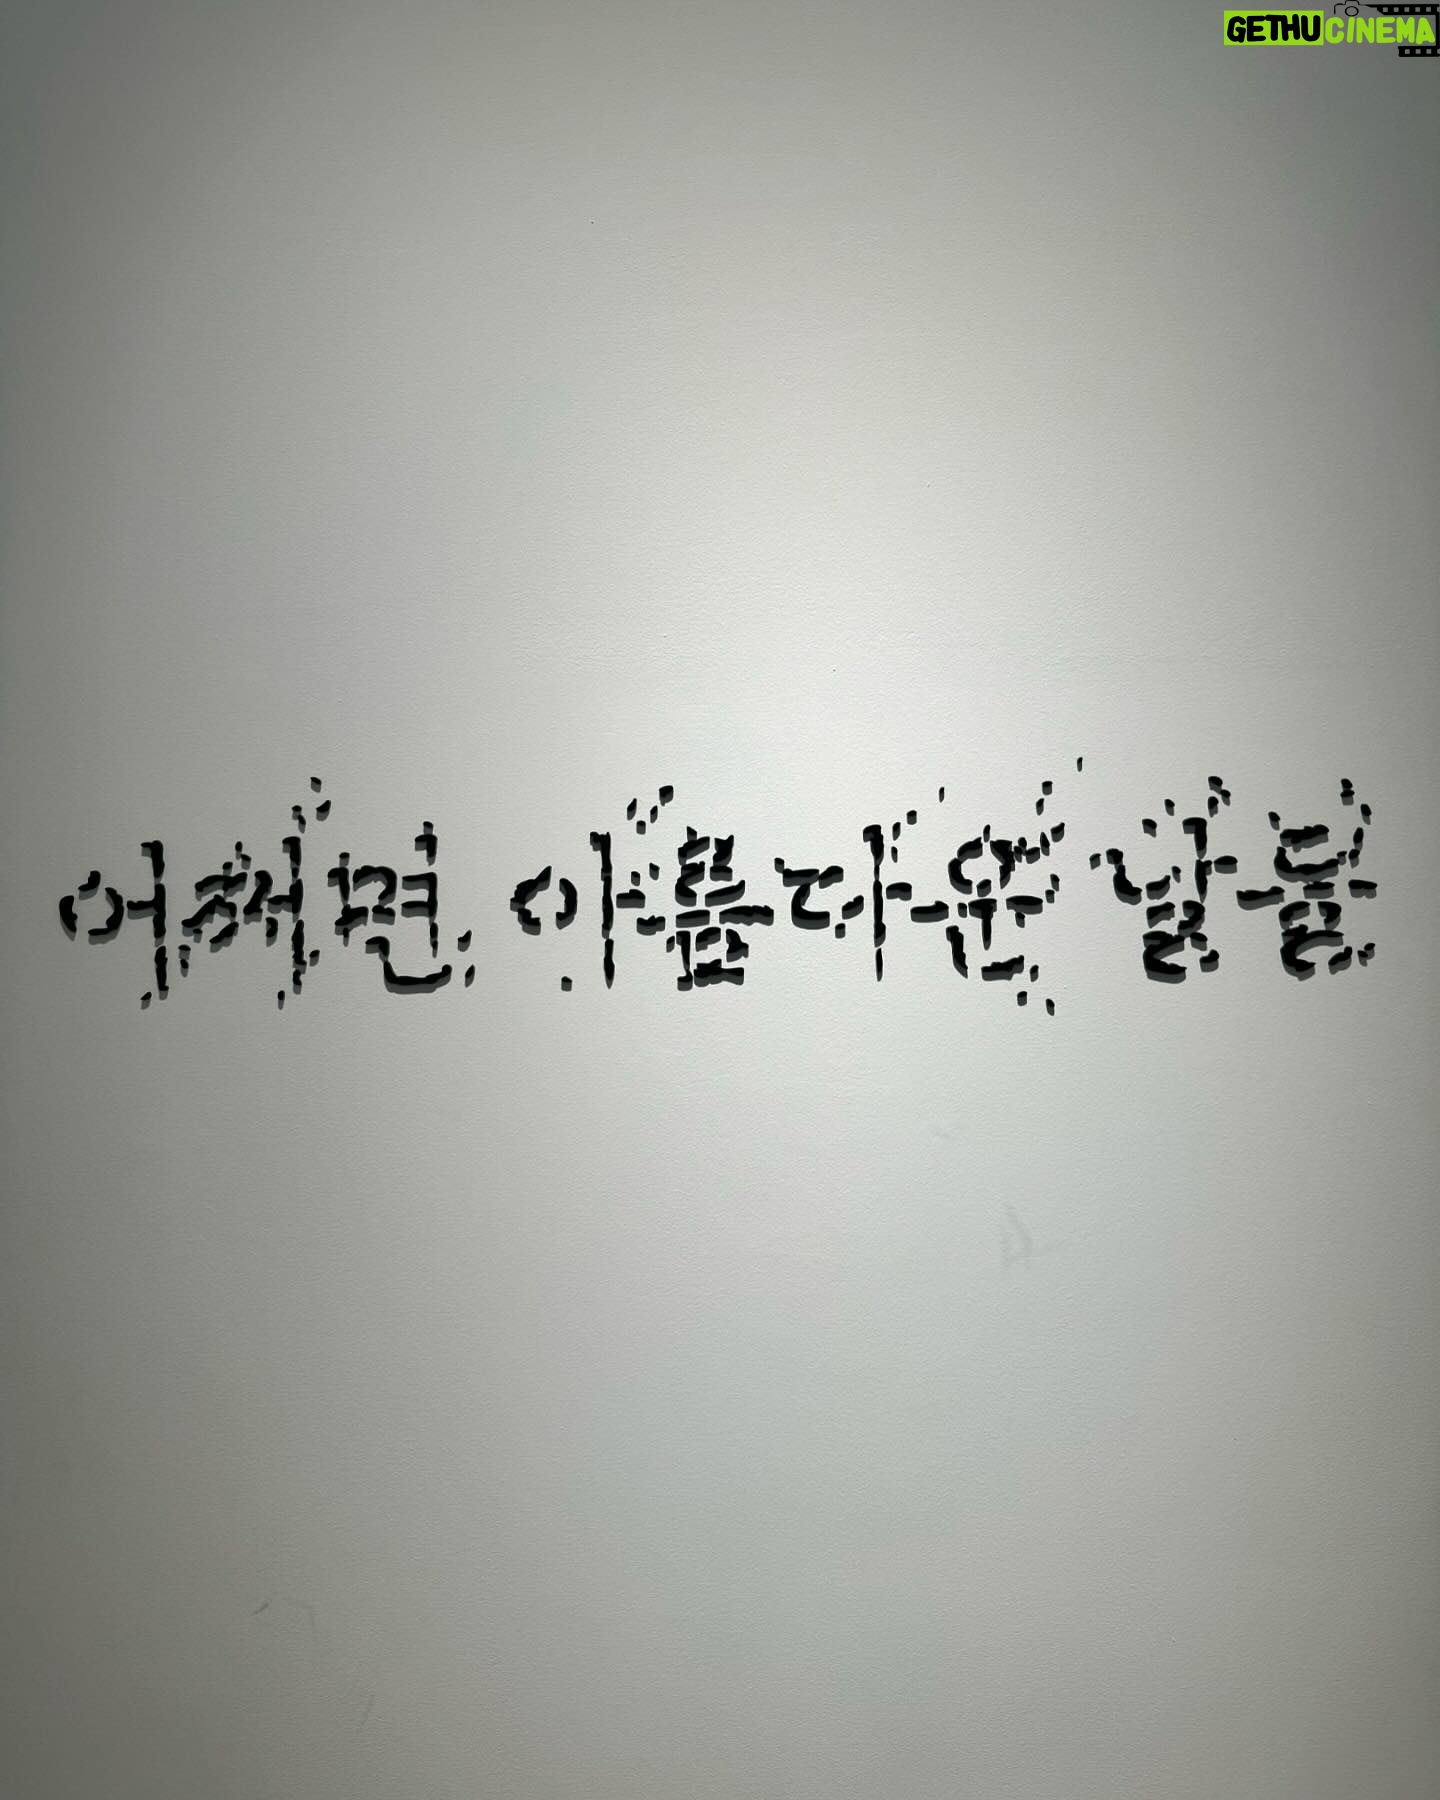 GETHUCINEMA
어쩌면 아름다운 날들